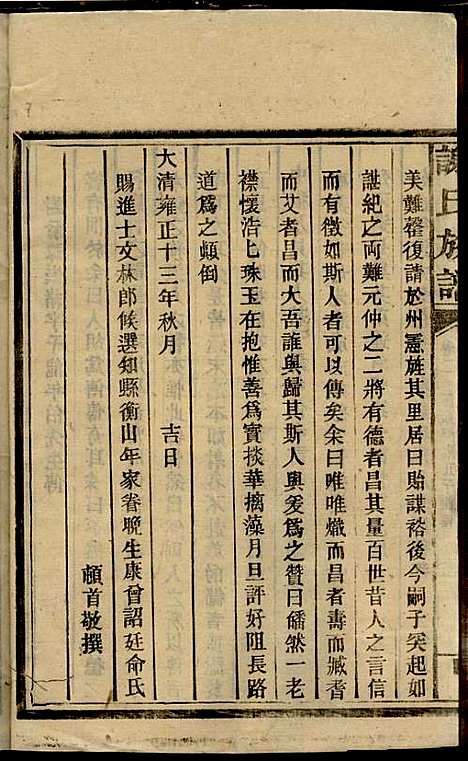 氏族譜
美難罄復請於州憲旌其里居曰貽謀裕後今嗣子突起如
諶紀之両難元仲之二將有德者昌其量百世昔人之言信
而有徵如斯人者可以傳矣余曰唯唯熾而昌者壽而臧耆
而艾者昌而大吾誰與歸其斯人與爰為之贊曰皤然一老
襟懷浩匕珠玉在抱惟善為寶掞華摛藻月旦評好阻長路
道為之傾倒
大清雍正十三年秋月 吉日
賜進士文林郎候選知縣衡山年家眷晩生康曾詔廷俞氏
頓首敬撰